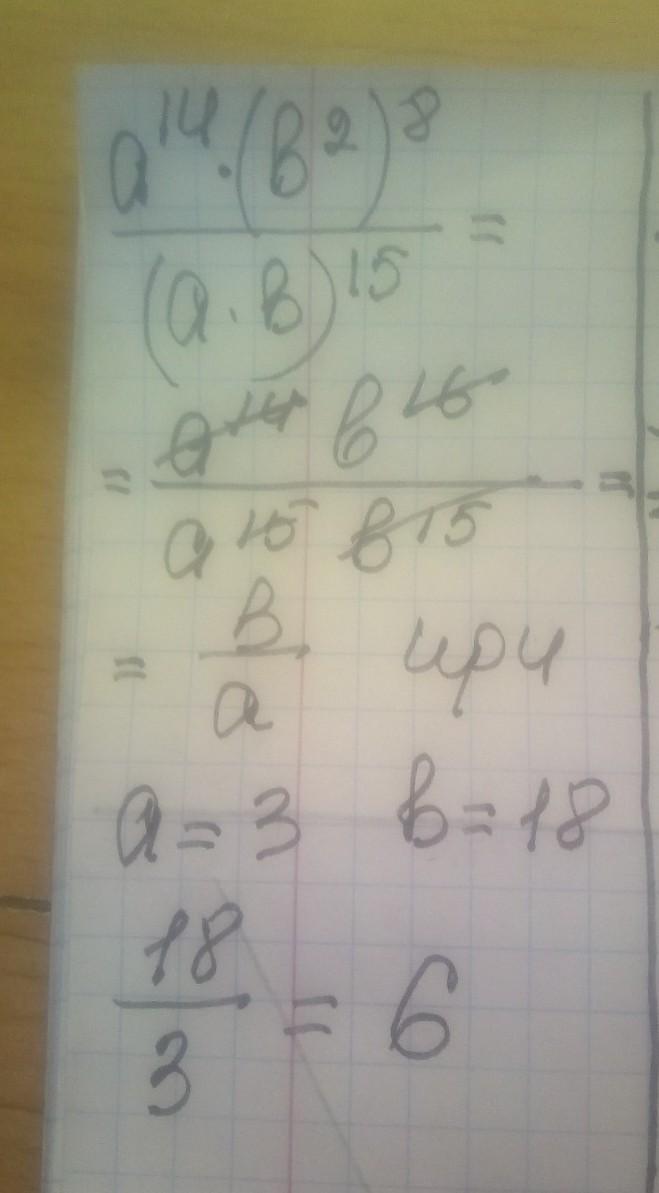 a¹⁴·(в²)⁸
(a·в)¹⁵ =
= a¹⁴ в¹⁶
a¹⁵ в¹⁵ =
= в/a при
a = 3 в = 18
18/3 = 6